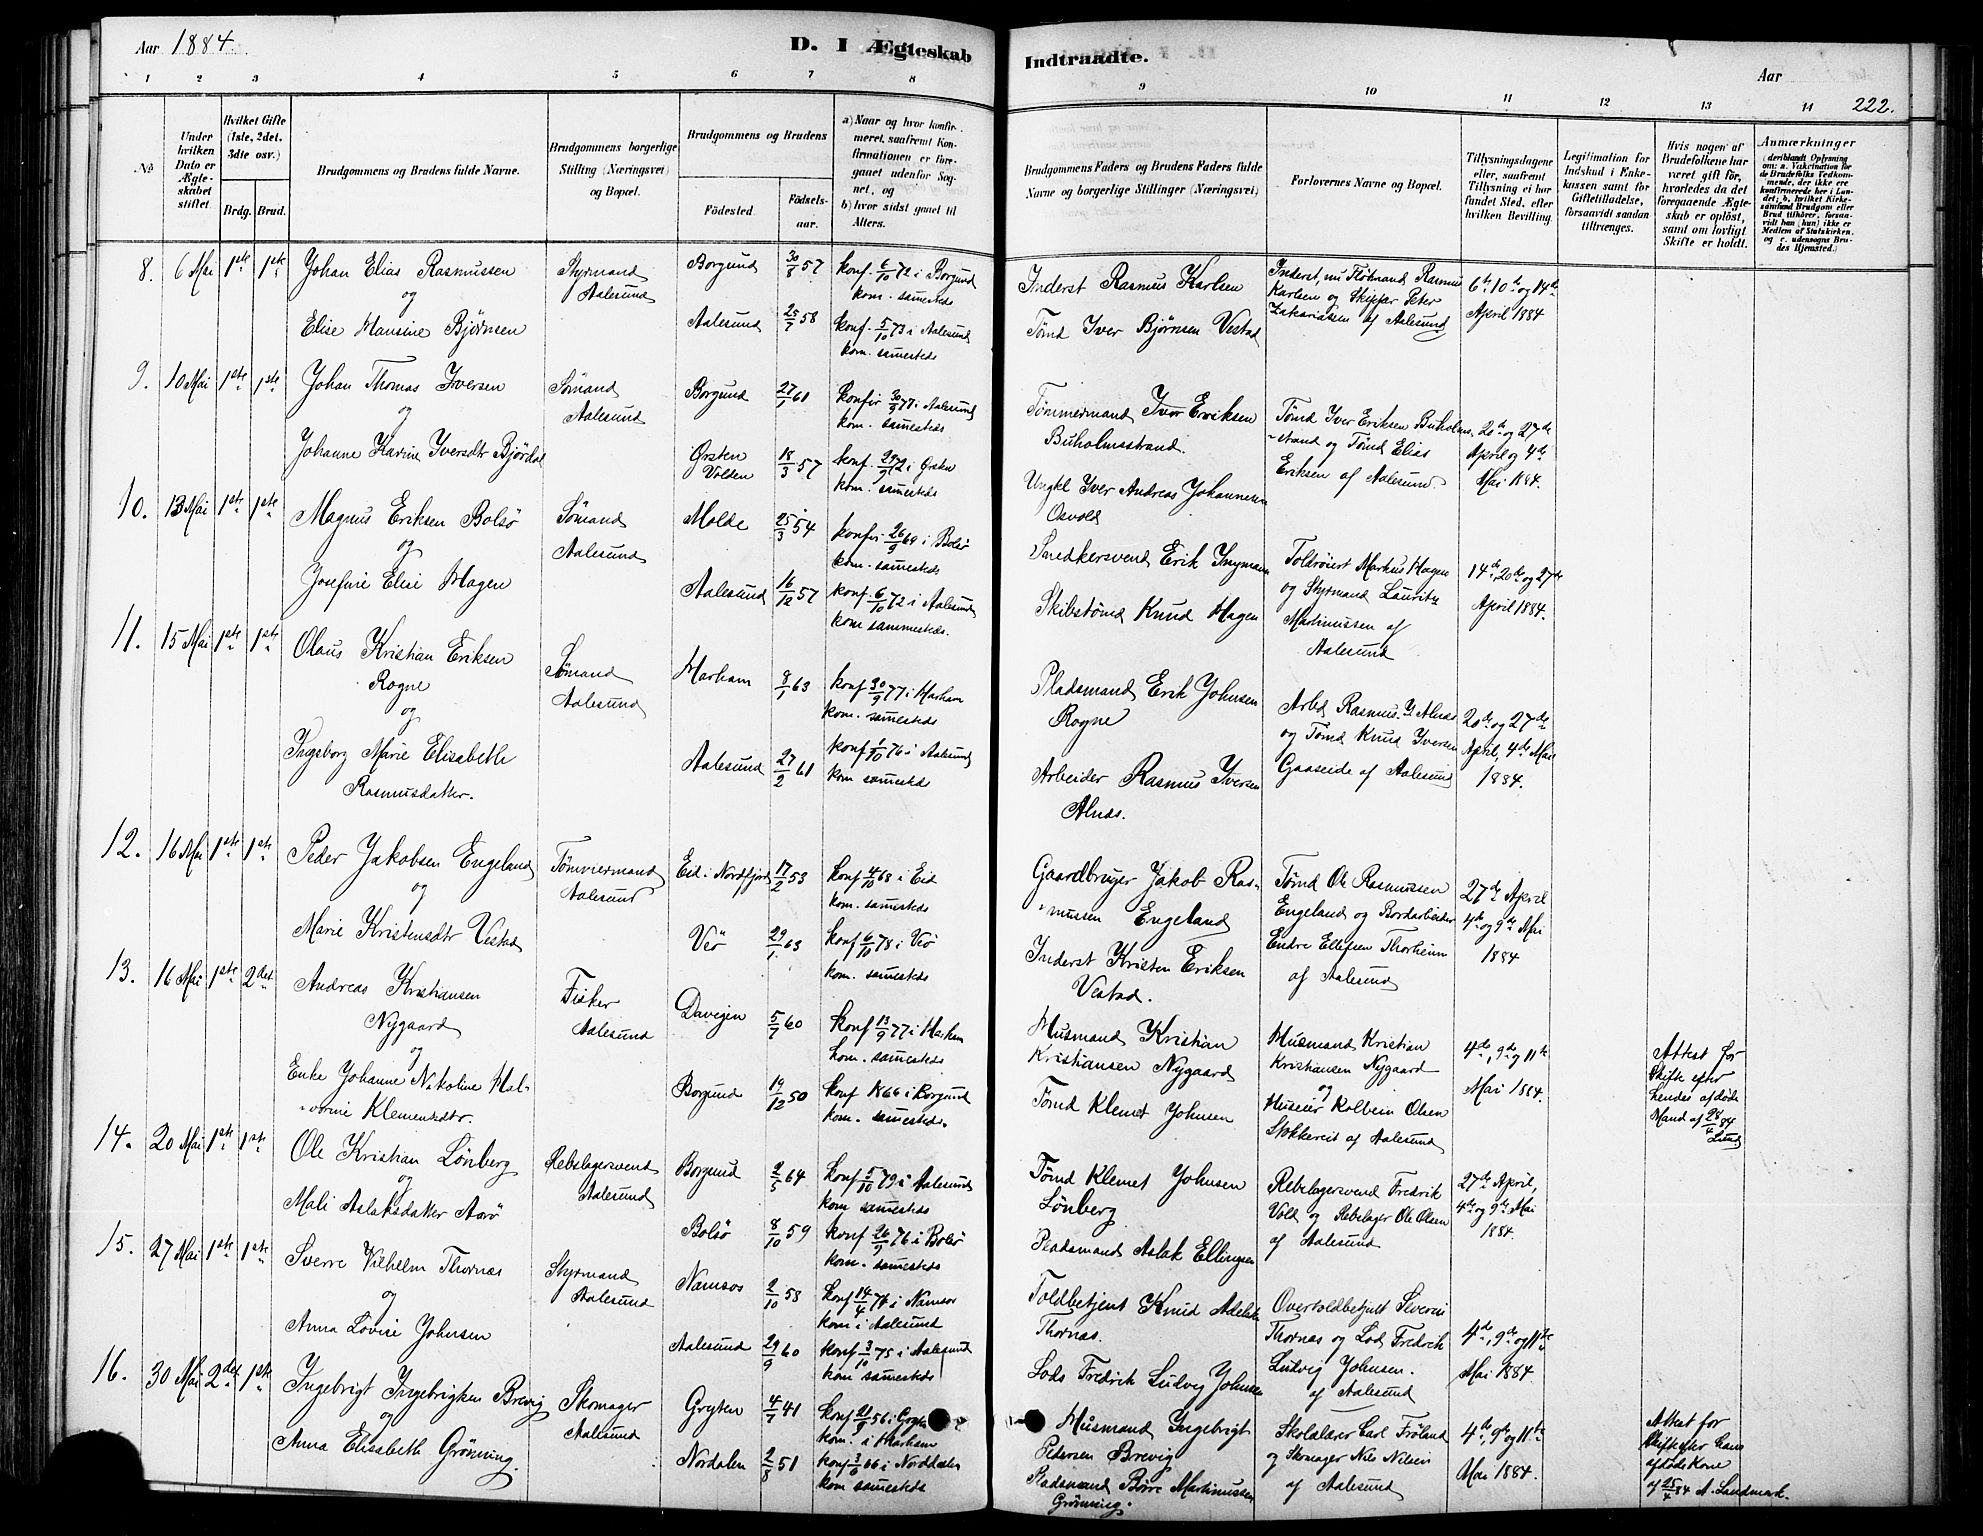 Aar 1884.
D. I Ægteskab
Indtraadte.
Aar
222.
1 2 3 4 5 6 7 8 9 10 11 12 13 14
No
Under hvilken Dato er Ægteskabet stiftet.
Hvilket Gifte (1ste, 2det, 3dte osv.)
Brdg. Brud.
Brudgommens og Brudens fulde Navne.
Brudgommens borgerlige Stilling (Næringsvei) og Bopæl.
Brudgommens og Brudens
Fødested.
Fødselsaar.
a) Naar og hvor konfirmeret, saafremt Konfirmationen er foregaaet udenfor Sognet, og
b) hvor sidst gaaet til Alters.
Brudgommens Faders og Brudens Faders fulde Navne og borgerlige Stillinger (Næringsvei).
Forlovernes Navne og Bopæl.
Tillysningsdagene eller, saafremt Tillysning ei har fundet Sted, efter hvilken Bevilling.
Legitimation for Indskud i Enkekassen samt for Giftetilladelse, forsaavidt saadan tiltrænges.
Hvis nogen af Brudefolkene har været gift før, hvorledes da det foregaaende Ægteskab er opløst, samt om lovligt Skifte er holdt.
Anmærkninger
8. 6 Mai 1ste 1ste Johan Elias Rasmussen
og
Elise Hansine Bjørnsen
Styrmand Aalesund
Borgund 57 konf. 6/10 72 i Borgund
kom. samesteds
Aalesund 25/7 58 konf. 5/10 73 i Aalesund
kom. samesteds
Inderst Rasmus Karlsen
Tømd Iver Bjørnsen Vestad
Inderst, nu Fløtmand Rasmus
Karlsen og Skipper Peter
Zakariassen af Aalesund
6te, 10de og 14de
April 1884
9. 10 Mai 1ste 1ste Johan Thomas Iversen
og
Johanne Karine Iversdtr Bjørdal
Sømand Aalesund
Borgund 27/1 61 konfir 30/9 77 i Aalesund
kom. samesteds
Ørsten Volden 18/3 57 konf. 29/9 72 i Ørsten
kom. samesteds
Tømmermand Iver Eriksen
Buholmsstrand.
Ungkl Iver Andreas Johannesen
Osvold
Tømd Iver Eriksen Buholms-
strand og Tømd Elias
Eriksen af Aalesund.
20de og 27de
April og 4de
Mai 1884.
10. 13 Mai 1ste 1ste Magnus Eriksen Bolsø
og
Josefine Elise Hagen
Sømand Aalesund
Molde 25/3 54 konfir 26/9 69 i Bolsø
kom. samesteds
Aalesund 16/12 57 konf. 6/10 72 i Aalesund
kom sammesteds.
Snedkersvend Erik Ingmann
Skibstømd Knud Hagen
Toldroiert Markus Hagen
og Styrmand Lauritz
Martinussen af
Aalesund
14de, 20de og 27de
April 1884.
11. 15 Mai 1ste 1ste Olaus Kristian Eriksen
Rogne
og
Ingeborg Marie Elisabeth
Rasmusdatter.
Sømand Aalesund
Harham 8/1 63 konf 30/9 77 i Harham
kom. samesteds
Aalesund 27/2 61 konf 1/10 76 i Aalesund
kom samesteds
Pladsmand Erik Johnsen
Rogne
Arbeider Rasmus Iversen
Alnæs.
Arbd Rasmus I. Alnæs
og Tømd Knud Iversen
Gaaseide af Aalesund
20de og 27de
April, 4de Mai
1884.
12. 16 Mai 1ste 1ste Peder Jakobsen Engeland
og
Marie Kristensdtr Vestad
Tømmermand Aalesund
Eid i Nordfjord 17/2 53 konf 4/10 68 i Eid
kom. samesteds
Veø 29/1 63 konf 6/10 78 i Veø
kom. samesteds
Gaardbruger Jakob Ras-
mussen Engeland
Inderst Kristen Eriksen
Vestad.
Tømd Ole Rasmussen
Engeland og Bordarbeider
Endre Ellefsen Thorheim
af Aalesund
27de April
4de og 9de Mai
1884
13. 16 Mai 1ste 2det Andreas Kristiansen
Nygaard
og
Enke Johanne Nikoline Hal-
vorine Klementsdtr.
Fisker Aalesund
Davigen 5/7 60 konf 13/9 77 i Harham
kom. samesteds
Borgund 19/12 50 konf 1866 i Borgund
kom. samesteds.
Husmand Kristian
Kristiansen Nygaard
Tømd Klemet Johnsen
Husmand Kristian
Kristiansen Nygaard
og
Huseier Kolbein Olsen
Stokkereit af Aalesund
4de, 9de og 11te
Mai 1884.
Attest for
Skifte efter
hendes afdøde
Mand af 28/4 84
14. 20 Mai 1ste 1ste Ole Kristian Lønberg
og
Mali Aslaksdatter Aarø
Rebslagersvend Aalesund
Borgund 2/5 64 konf 5/10 79 i Aalesund
kom samesteds
Bolsø 8/10 59 konf 26/9 76 i Bolsø
kom. samesteds
Tømd Klemet Johnsen
Lønberg
Pladsmand Aslak Ellingsen
Rebslagersvend Fredrik
Vold og Rebslager Ole Olsen
af Aalesund
27de April,
4de og 9de Mai
1884.
15. 27 Mai 1ste 1ste Sverre Vilhelm Thornæs
og
Anna Lovise Johnsen
Styrmand Aalesund
Namsos 2/10 58 konf 14/4 74 i Namsos
kom i Aalesund
Aalesund 29/9 60 konf. 3/10 75 i Aalesund
kom samesteds
Toldbetjent Knud Adelsten
Thornæs.
Lods Fredrik Ludvig Johnsen
Overtoldbetjent Severin
Thornæs og Lods Fredrik
Ludvig Johnsen.
af Aalesund
4de, 9de og 11te
Mai 1884.
16. 30 Mai 2det 1ste Ingebrigt Ingebrigtsen Brevig
og
Anna Elisabeth Grønning.
Skomager Aalesund
Gryten 4/7 41 konf 21/9 56 i Gryten
kom. i Harham
Nordalen 2/8 51 konf 3/6 66 i Norddalen
kom samesteds
Husmand Ingebrigt
Pedersen Brevig
Pladsmand Børre Martinussen
Grønning.
Skolelærer Carl Frøland
og Skomager Nils Nilsen
af Aalesund
4de, 9de og 11te
Mai 1884.
Attest for
Skifte efter hans
afdøde Kone
af 25/4 84 A. Landmark.